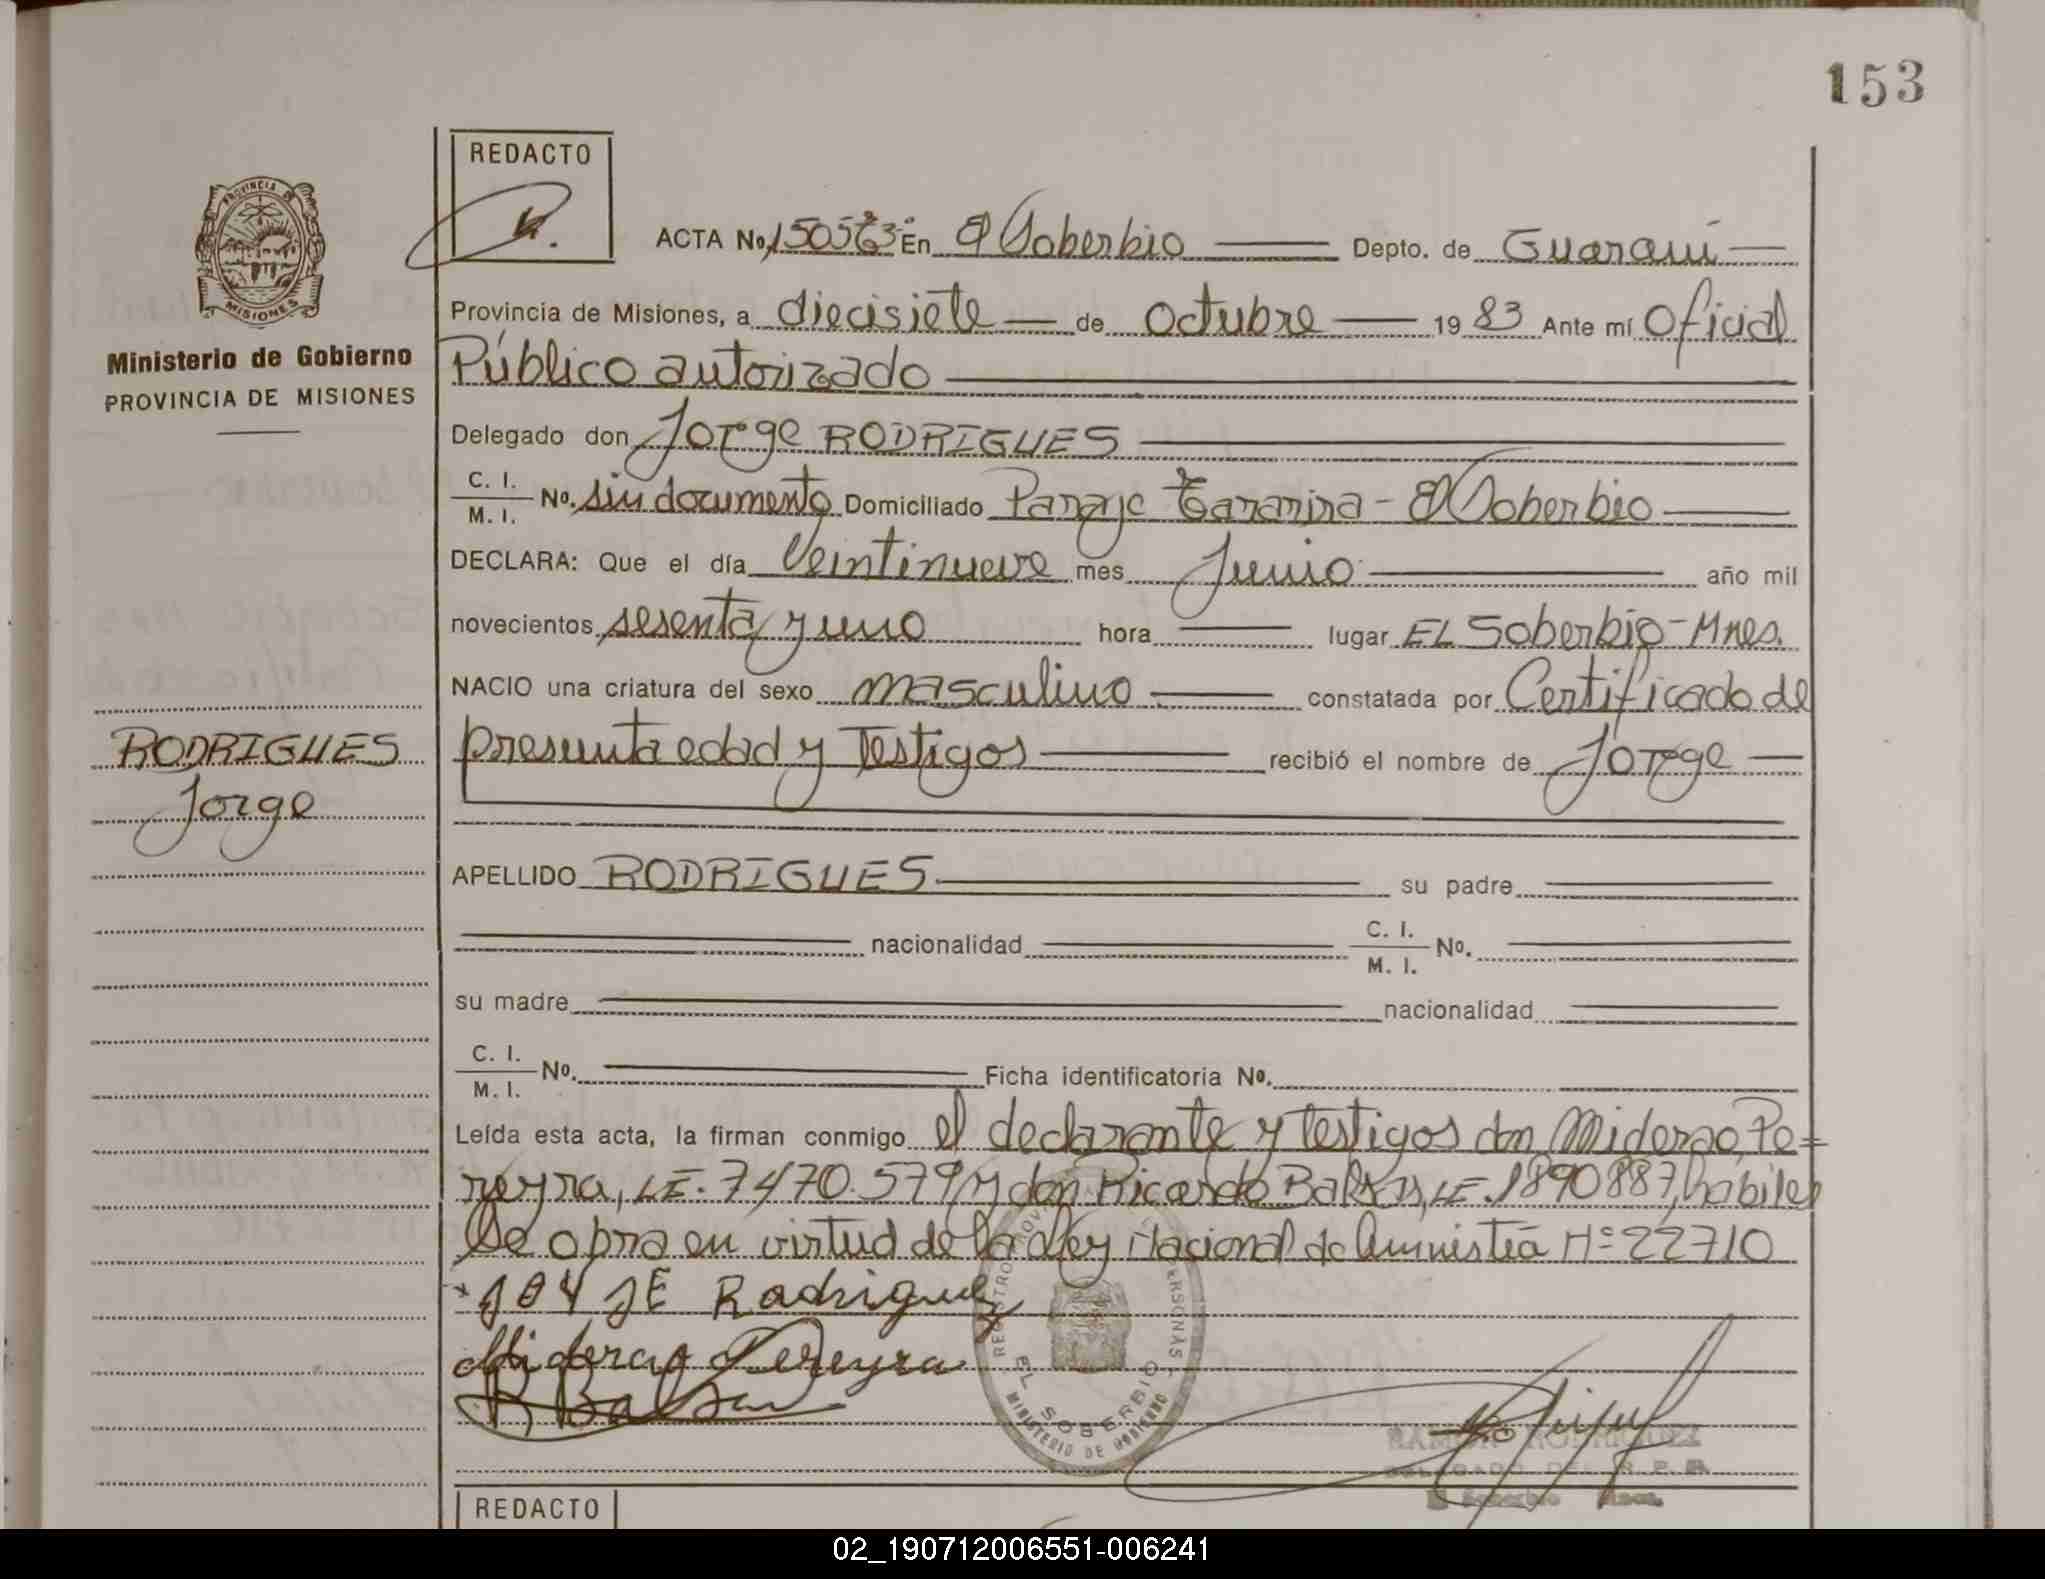 153
REDACTO
PROVINCIA
MISIONES
Ministerio de Gobierno
PROVINCIA DE MISIONES
ACTA No. En El Soberbio Depto. de Guaraní
Provincia de Misiones, a diecisiete de octubre 19 83 Ante mí Oficial
Público autorizado
Delegado don Jorge RODRIGUES
C. I. M. I. No. sin documento Domiciliado Paraje - El Soberbio
DECLARA: Que el día Veintinueve mes Junio año mil
novecientos sesenta y uno hora lugar EL Soberbio-Mnes.
NACIO una criatura del sexo masculino constatada por Certificado de
presunta edad y Testigos recibió el nombre de Jorge
RODRIGUES
Jorge
APELLIDO RODRIGUES su padre
nacionalidad C. I. M. I. No.
su madre nacionalidad
C. I. M. I. No. Ficha identificatoria No.
Leída esta acta, la firman conmigo el declarante y testigos don Miderao Pe=
reyra, LE. 7470.579 y don Ricardo LE. 1890887, hábiles
Se obra en virtud de la Ley Nacional de Amnistía Nº 22710
Rodrigues
Pereyra
REGISTRO PERSONAS
EL SOBERBIO
MINISTERIO DE GOBIERNO
RAMON RODRIGUEZ
DELEGADO DEL R. P.
El Soberbio Mnes.
REDACTO
02_190712006551-006241